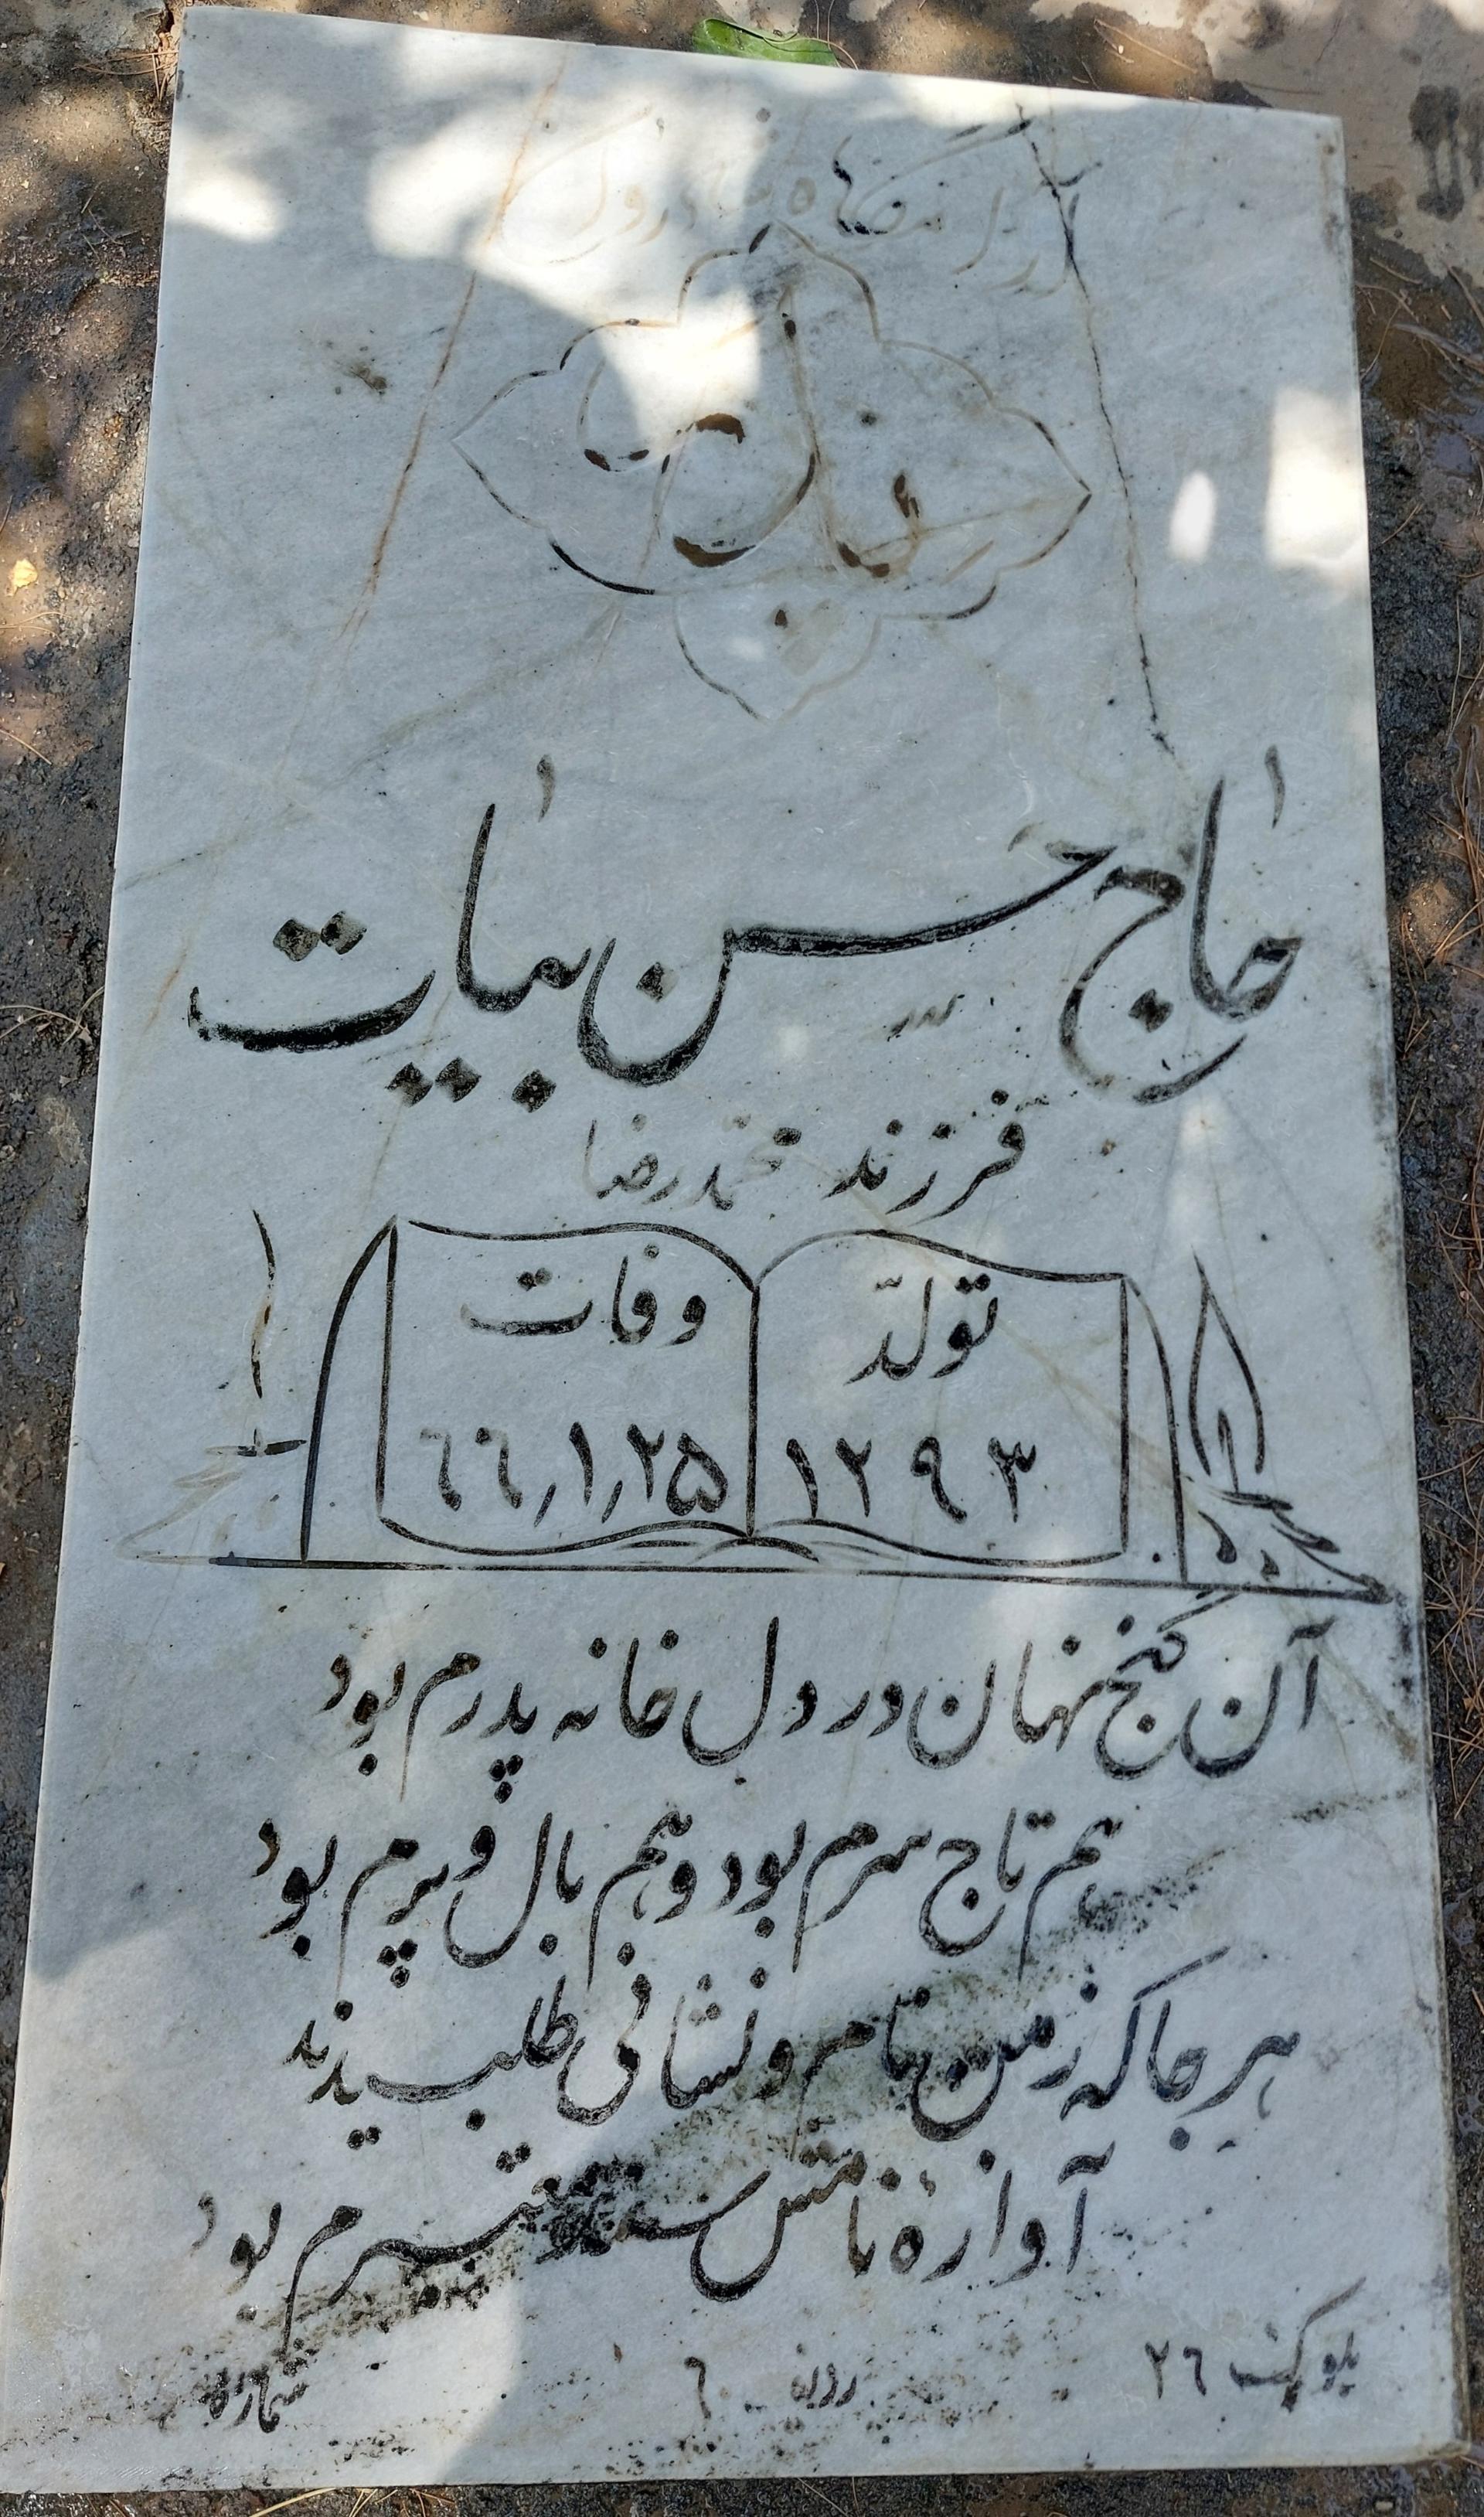 آرامگاه شادروان
حاج حسن بیات
فرزند محمدرضا
تولّد وفات
۱۲۹۳ ۶۶٫۱٫۲۵
آن گنج نهان در دل خانه پدرم بود
هم تاج سرم بود و هم بال و پرم بود
هر جا که ز من نام و نشانی طلبیدند
آوازهٔ نامش سند معتبرم بود
بلوک ۲۶ ردیف ۶ شماره